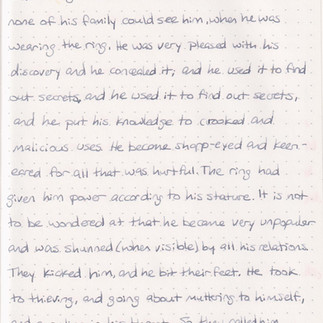 none of his family could see him, when he was
wearing the ring. He was very pleased with his
discovery and he concealed it; and he used it to find
out secrets, and he used it to find out secrets,
and he put his knowledge to crooked and
malicious uses. He become sharp-eyed and keen-
eared for all that was hurtful. The ring had
given him power according to his stature. It is not
to be wondered at that he became very unpopular
and was shunned (when visible) by all his relations.
They kicked him, and he bit their feet. He took
to thieving, and going about muttering to himself,